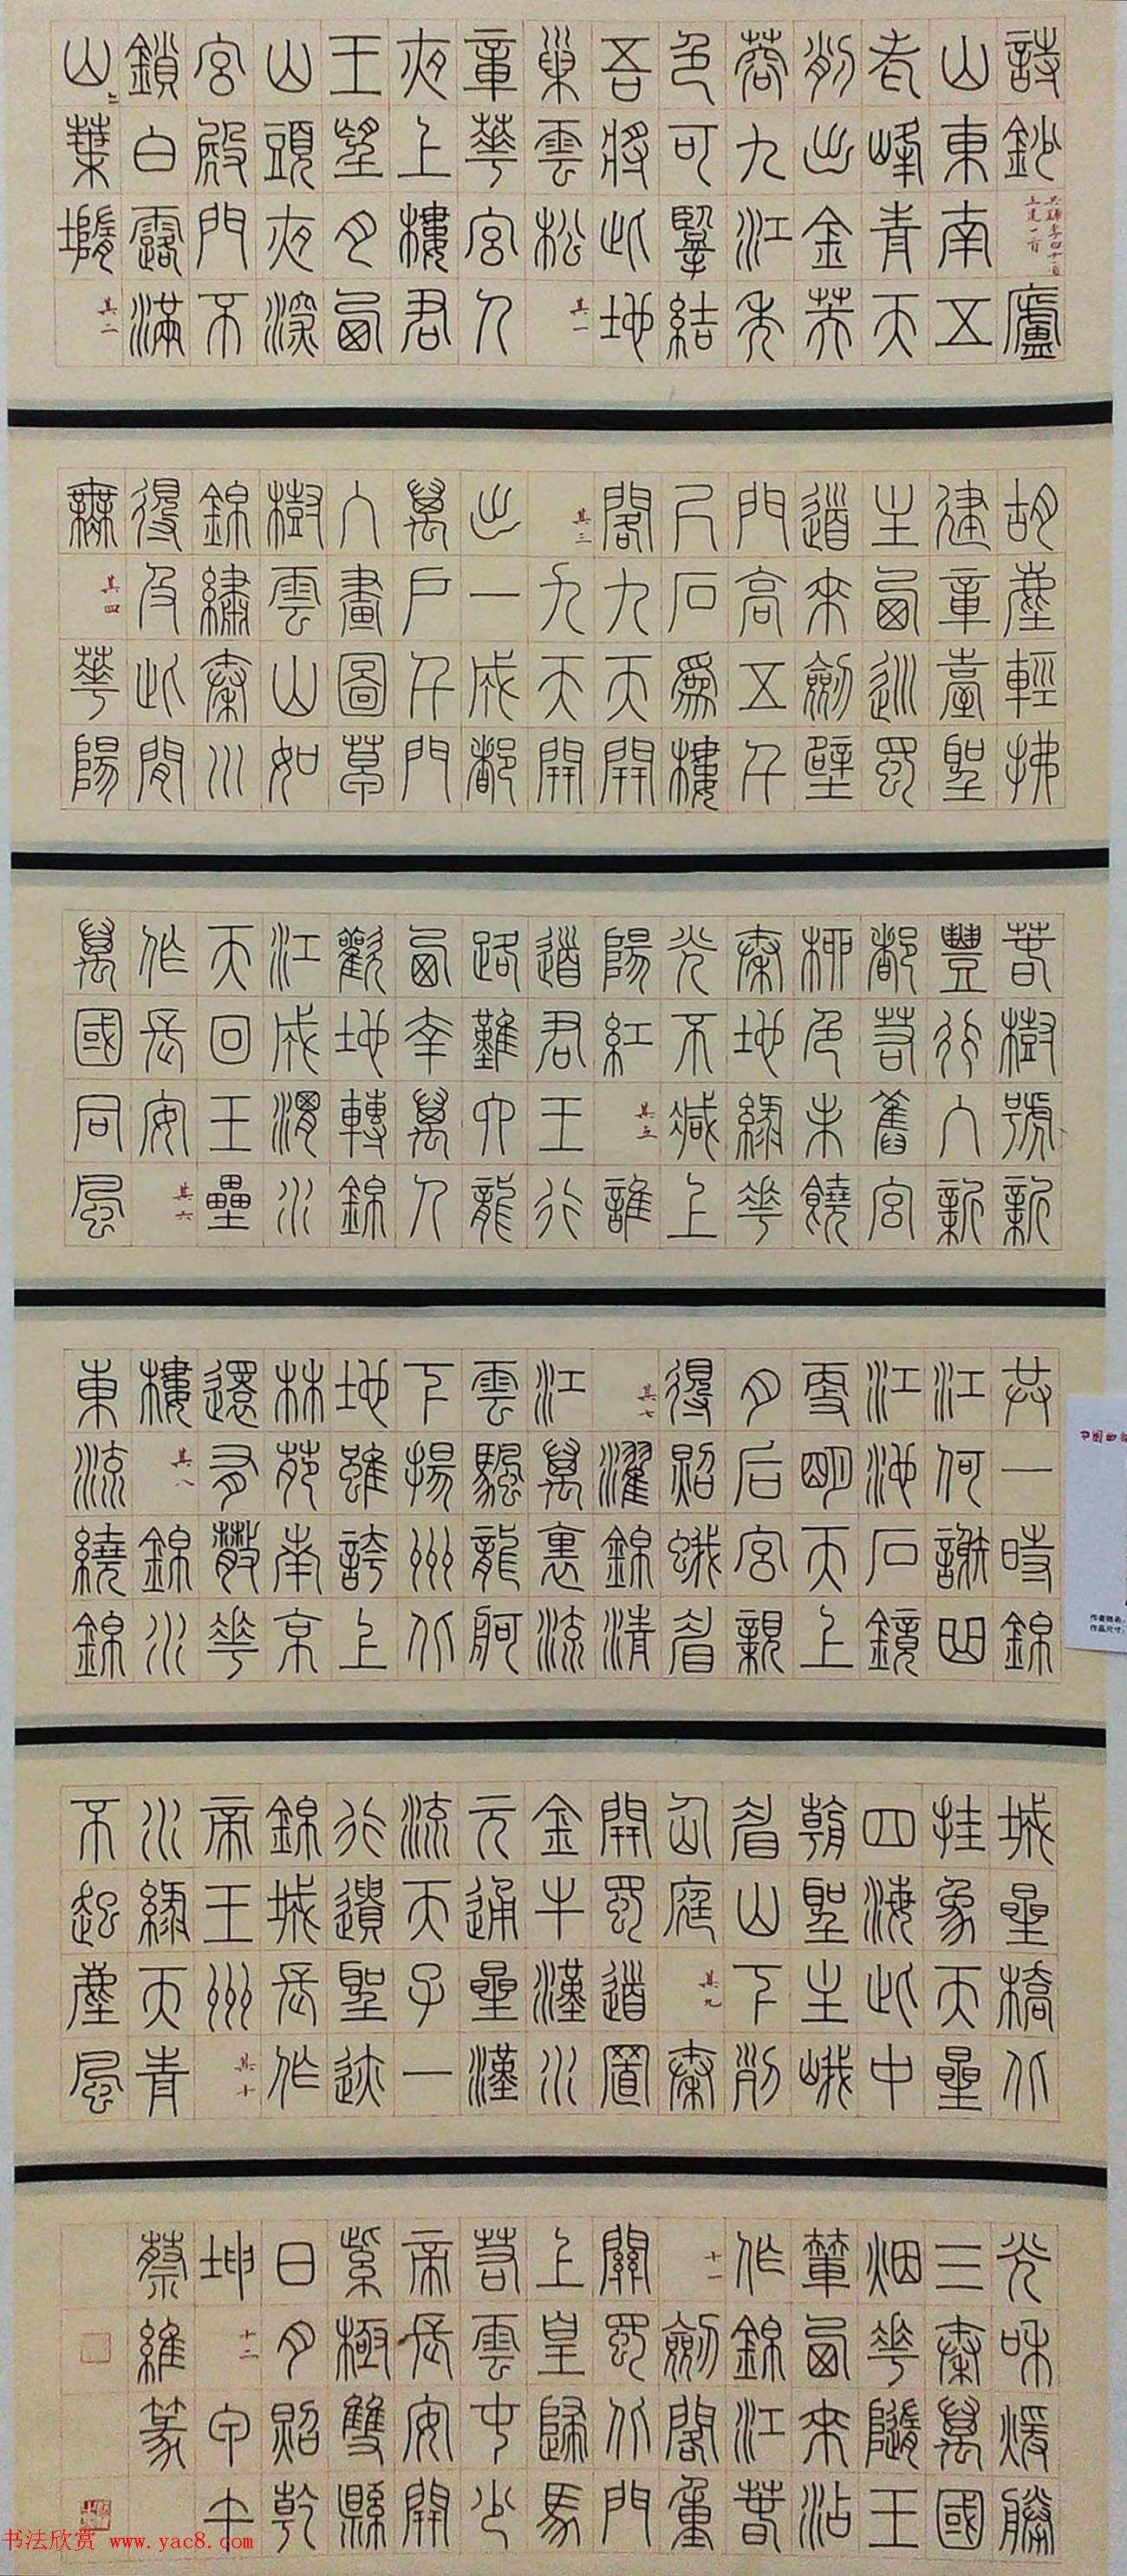 詩鈔 共錄李白十一首王建一首 廬
山東南五
老峰青天
削出金芙
蓉九江秀
色可攬結
吾將此地
巢雲松 其一
章華宮人
夜上樓君
王望月西
山頭夜深
宮殿門不
鎖白露滿
山葉墮 其二
胡塵輕拂
建章臺聖
主西巡蜀
道來劍壁
門高五千
尺石爲樓
閣九天開
其三 九天開
出一成都
萬戶千門
入畫圖草
樹雲山如
錦繡秦川
得及此間
無 其四 華陽
春樹號新
豐行入新
都若舊宮
柳色未饒
秦地綠花
光不減上
陽紅 其五 誰
道君王行
路難六龍
西幸萬人
歡地轉錦
江成渭水
天回玉壘
作長安 其六
萬國同風
共一時錦
江何謝曲
江池石鏡
更明天上
月后宮親
得照蛾眉
其七 濯錦清
江萬里流
雲颿龍舸
下揚州北
地雖誇上
林苑南京
還有散花
樓 其八 錦水
東流繞錦
城星橋北
挂象天星
四海此中
朝聖主峨
眉山下列
仙庭 其九 秦
開蜀道置
金牛漢水
元通星漢
流天子一
行遺聖跡
錦城長作
帝王州 其十
水綠天青
不起塵風
光和煖勝
三秦萬國
烟花隨玉
輦西來沾
作錦江春
十一 劍閣重
關蜀北門
上皇歸馬
若雲屯少
帝長安開
紫極雙縣
日月照乾
坤 十二 甲午
蔡維篆
作者姓名：
作品尺寸：
书法欣赏 www.yac8.com